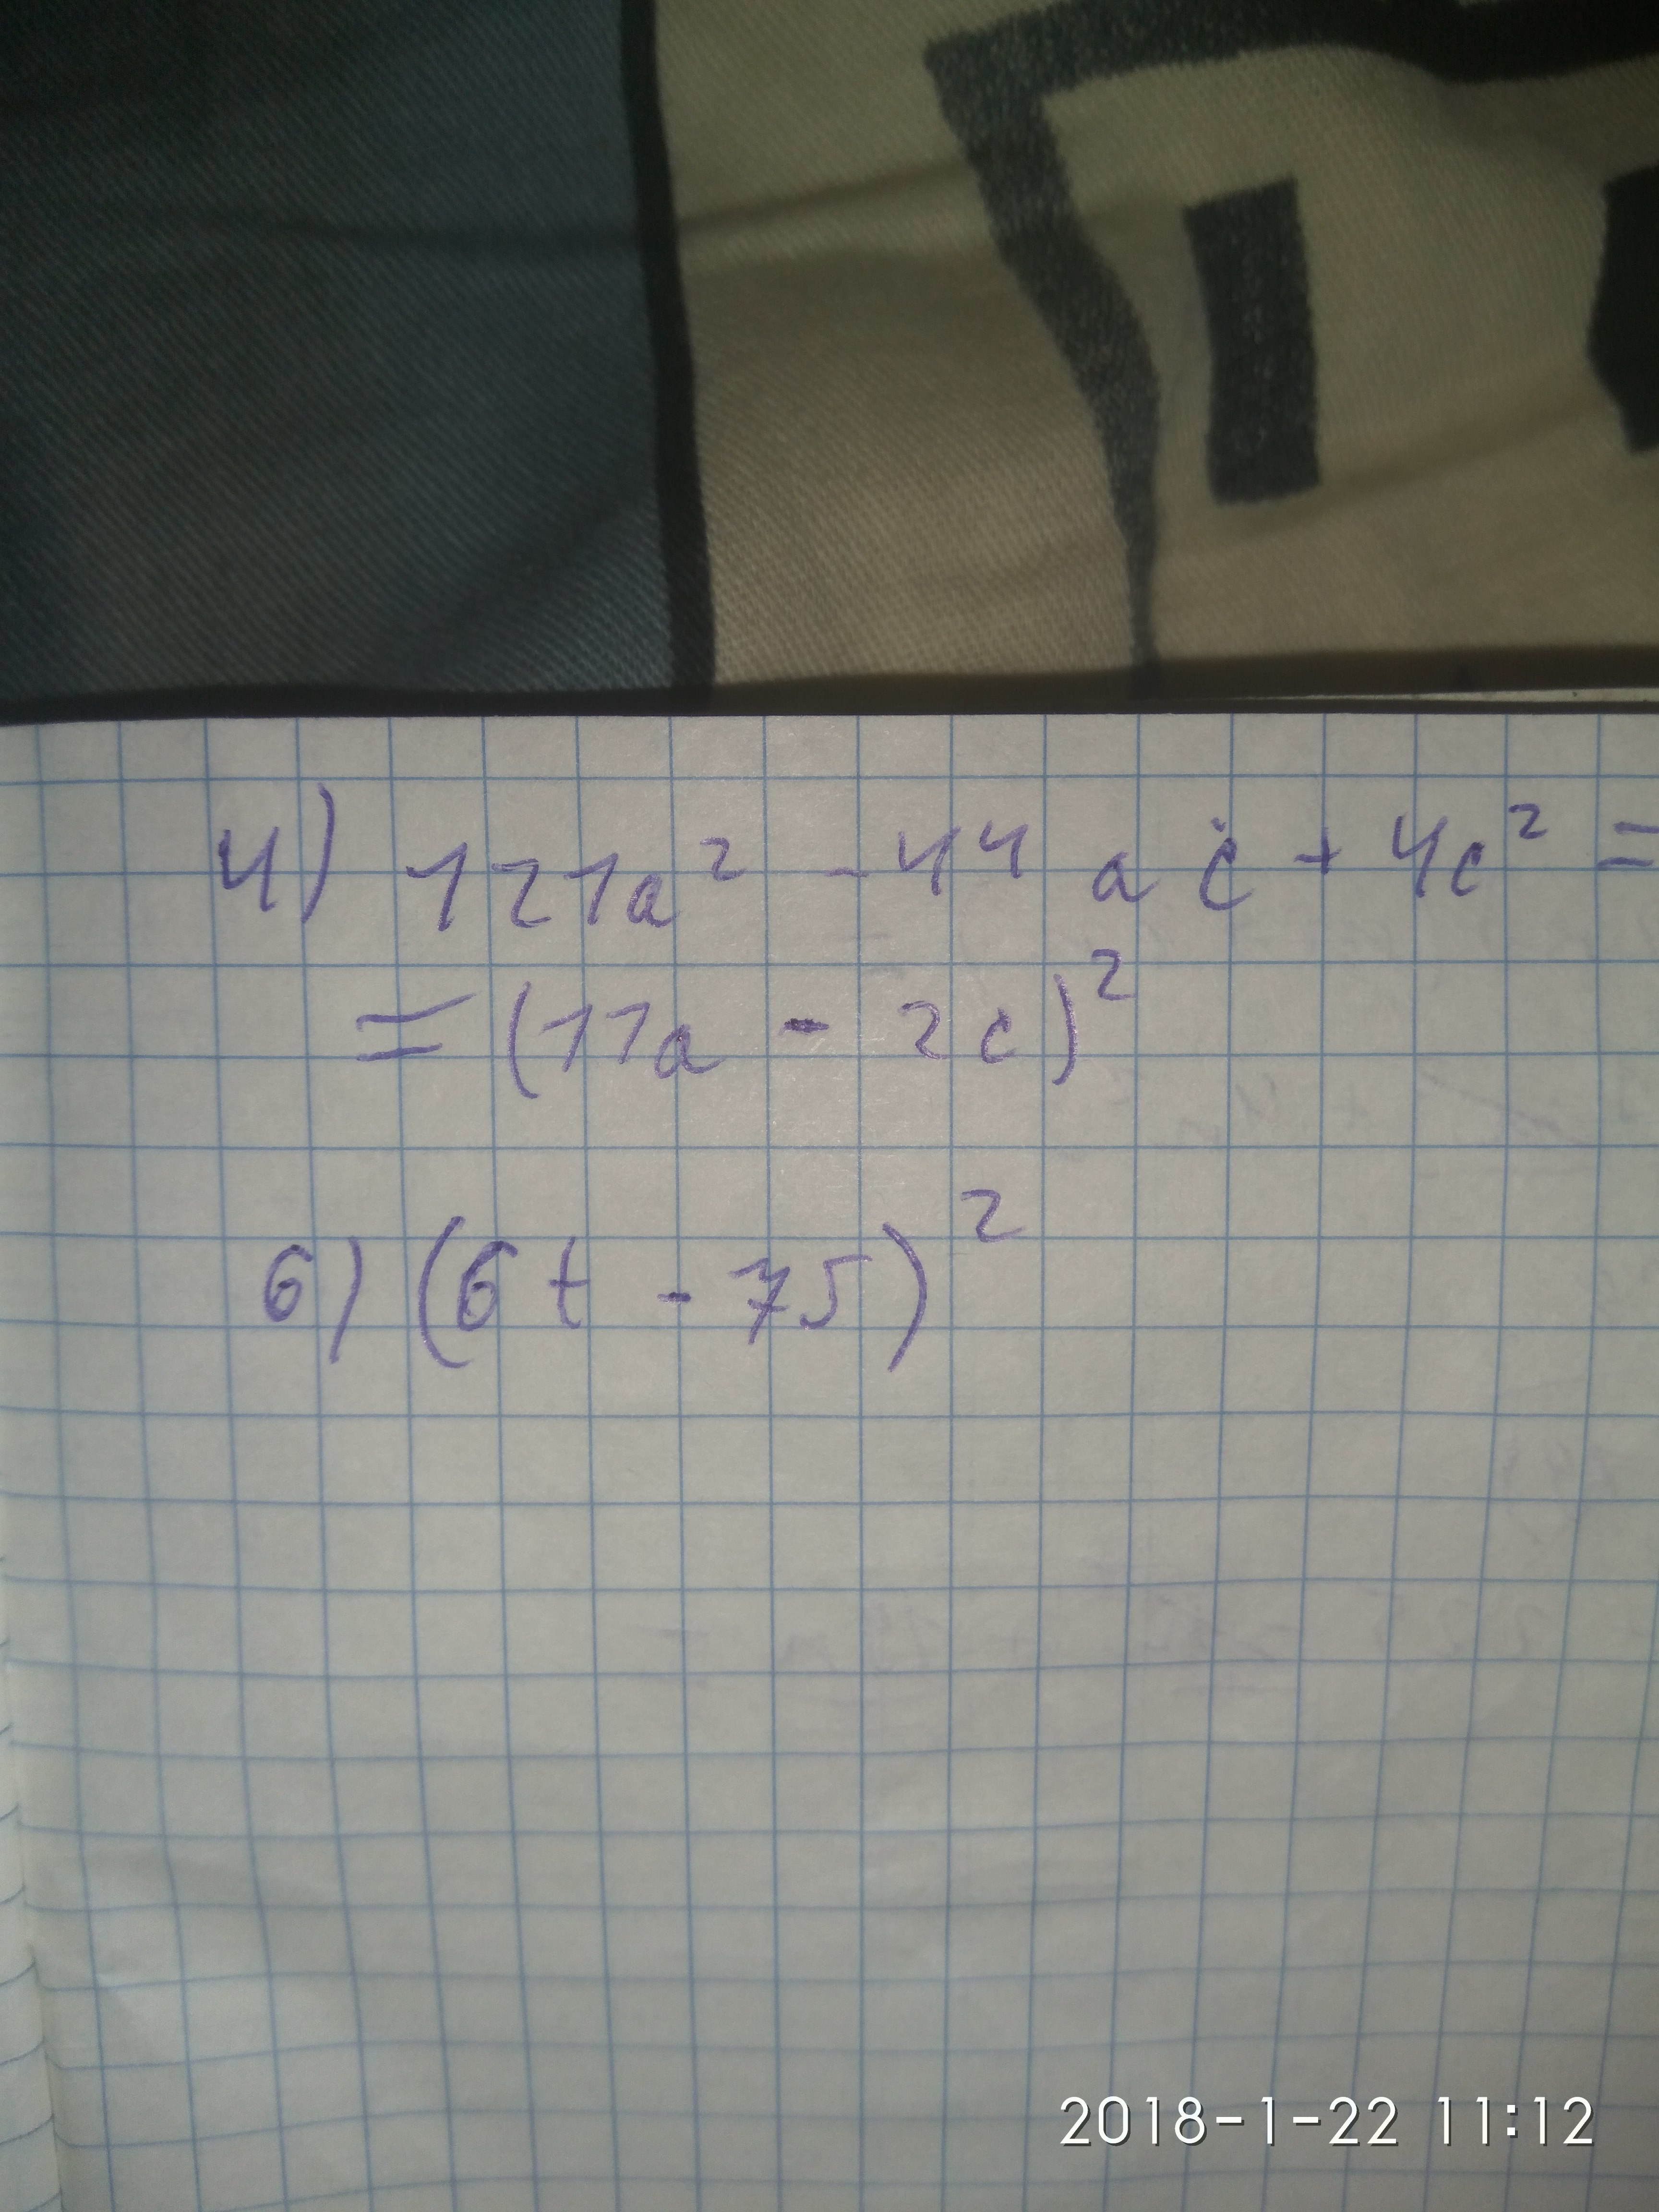 4) 121a² - 44 a c + 4c² =
= (11a - 2c)²
6) (6t - 75)²
2018-1-22 11:12